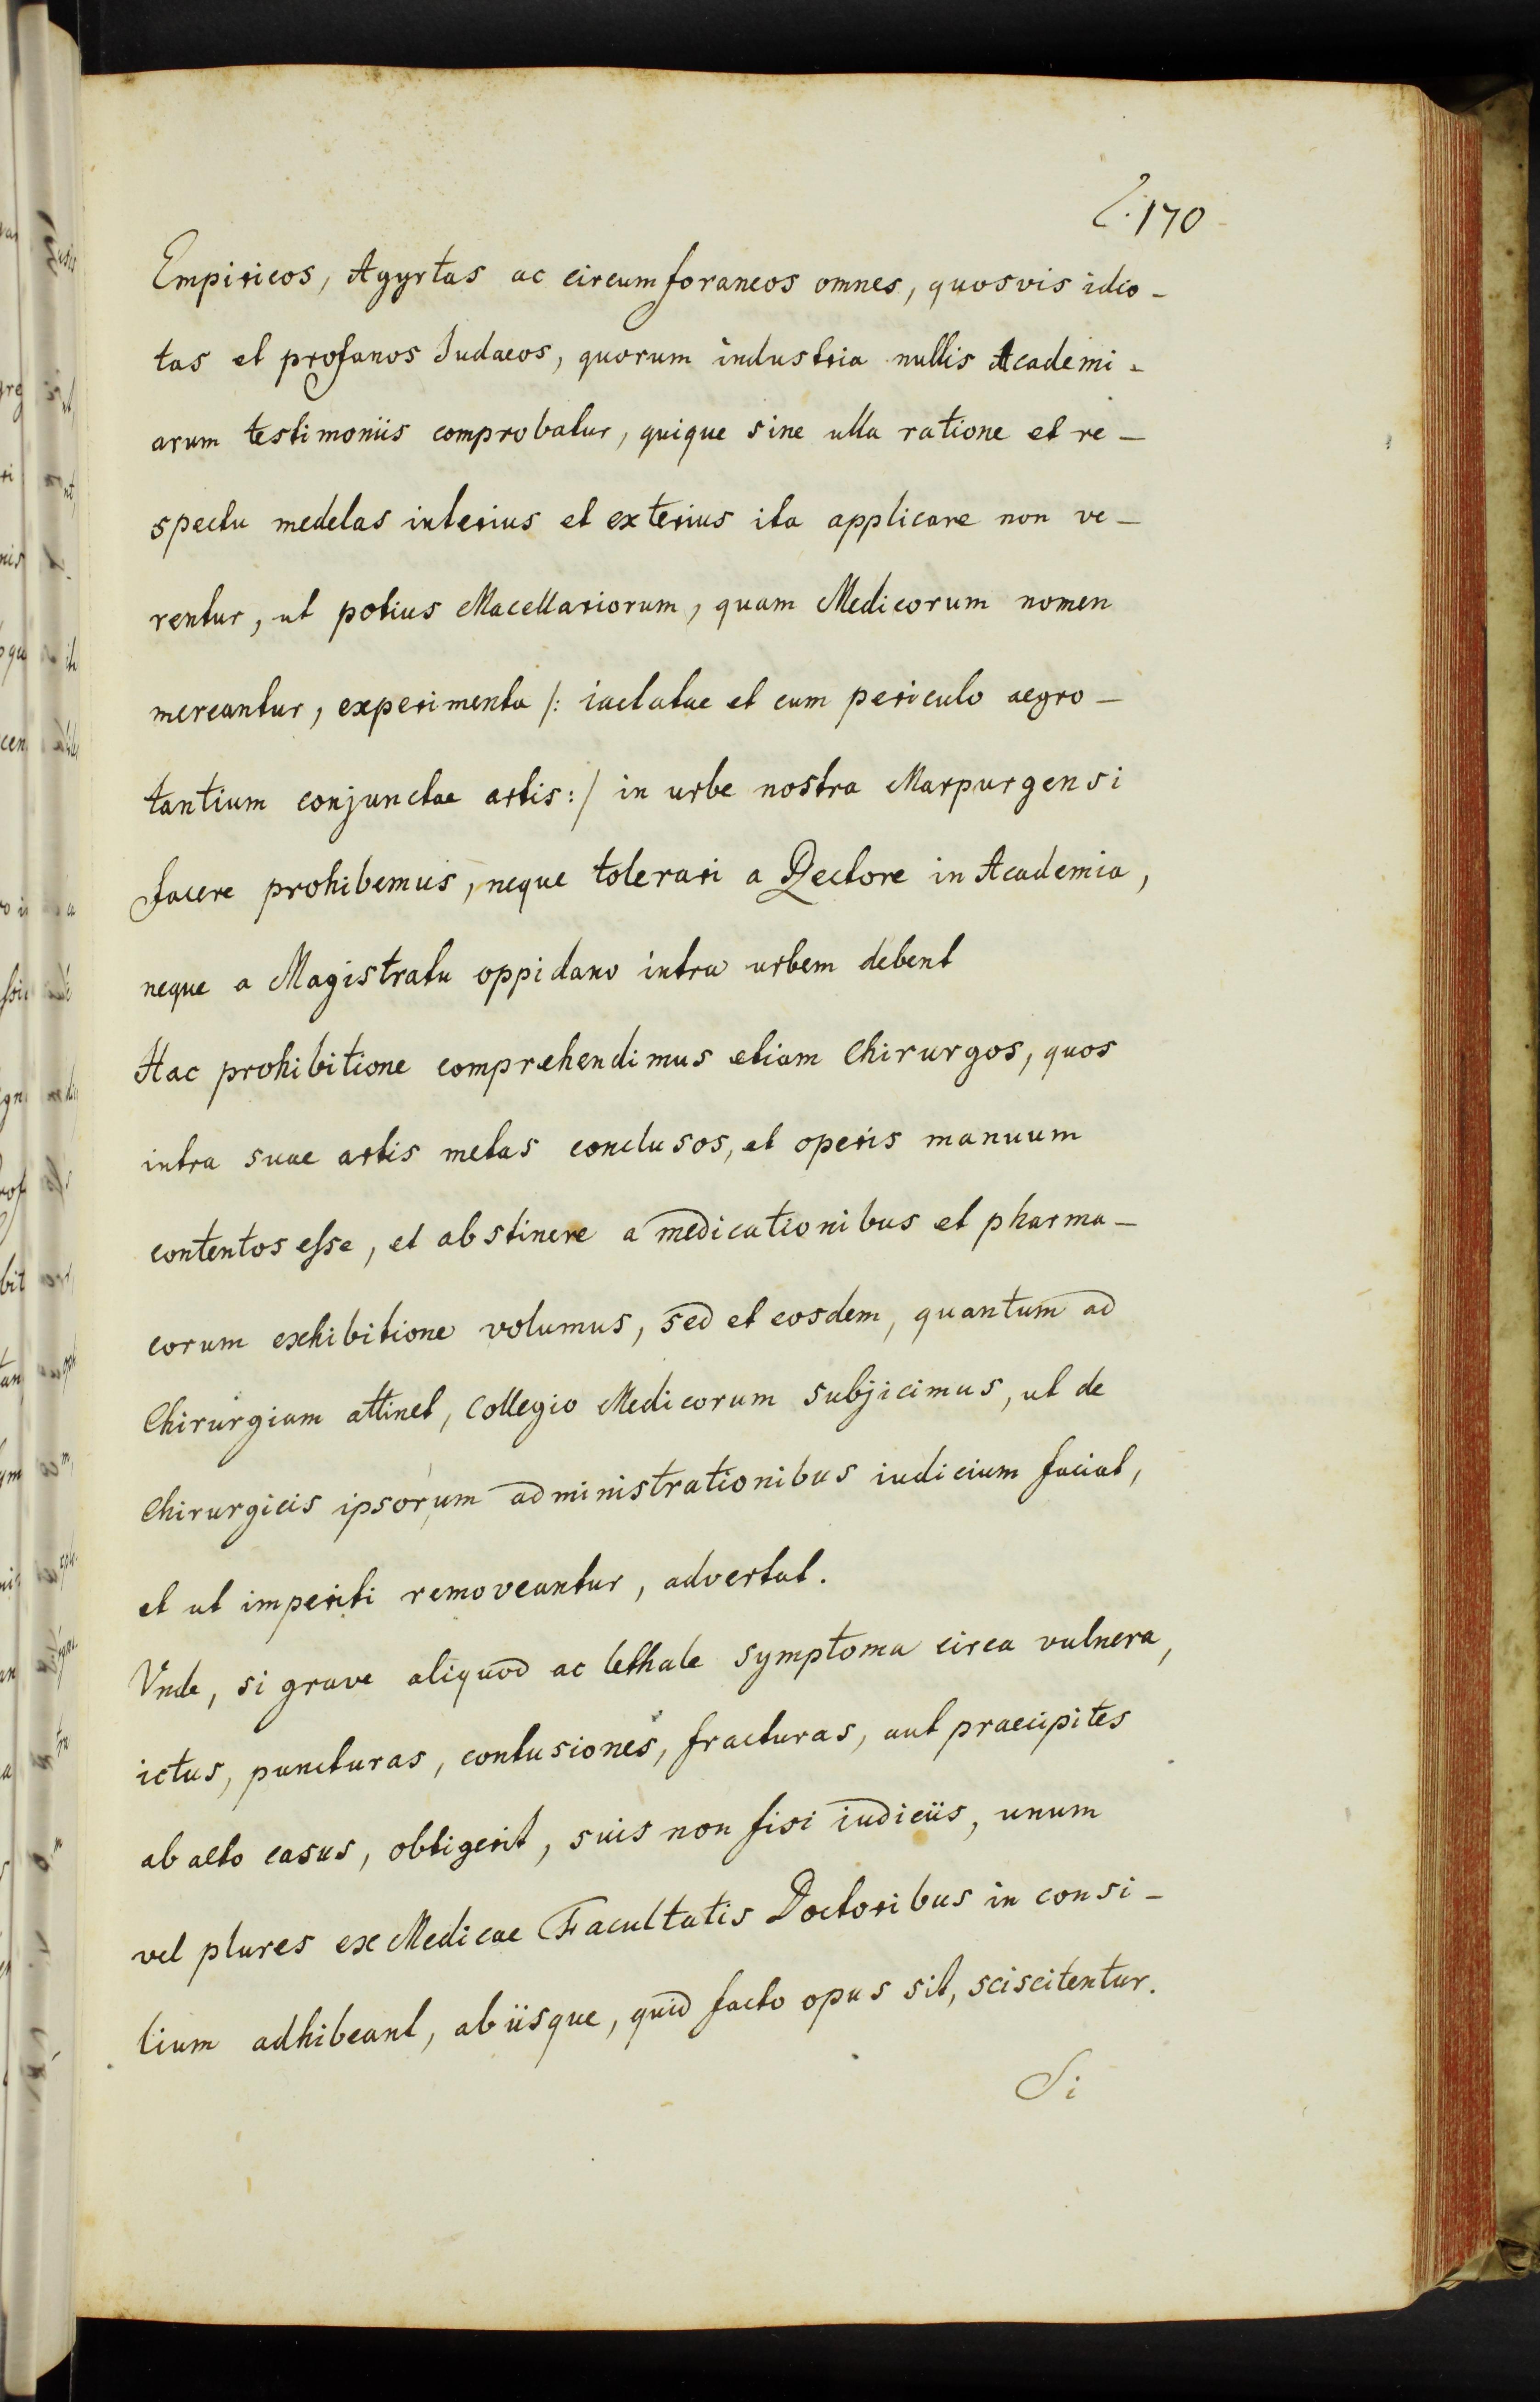 170
Empiricos, Agyrtas ac circumforaneos omnes, quosvis idio-
tas et profanos Judaeos, quorum industria nullis Academi-
arum testimoniis comprobatur, quique sine ulla ratione et re-
spectu medelas interius et exterius ita applicare non ve-
rentur, ut potius Macellariorum, quam Medicorum nomen
mereantur, experimenta /: iactatae et cum periculo aegro-
tantium conjunctae artis :/ in urbe nostra Marpurgensi
facere prohibemus, neque tolerari a Rectore in Academia,
neque a Magistratu oppidano intra urbem debent
Hac prohibitione comprehendimus etiam Chirurgos, quos
intra suae artis metas conclusos, et operis manuum
contentos esse, et abstinere a medicationibus et pharma-
corum exhibitione volumus, sed et eosdem, quantum ad
Chirurgiam attinet, Collegio Medicorum subjicimus, ut de
Chirurgicis ipsorum administrationibus iudicium faciat,
et ut imperiti removeantur, advertat.
Vnde, si grave aliquod ac lethale symptoma circa vulnera,
ictus, puncturas, contusiones, fracturas, aut praecipites
ab alto casus, obtigerit, suis non fisi iudiciis, unum
vel plures ex Medicae Facultatis Doctoribus in consi-
lium adhibeant, ab iisque, quid facto opus sit, sciscitentur.
Si